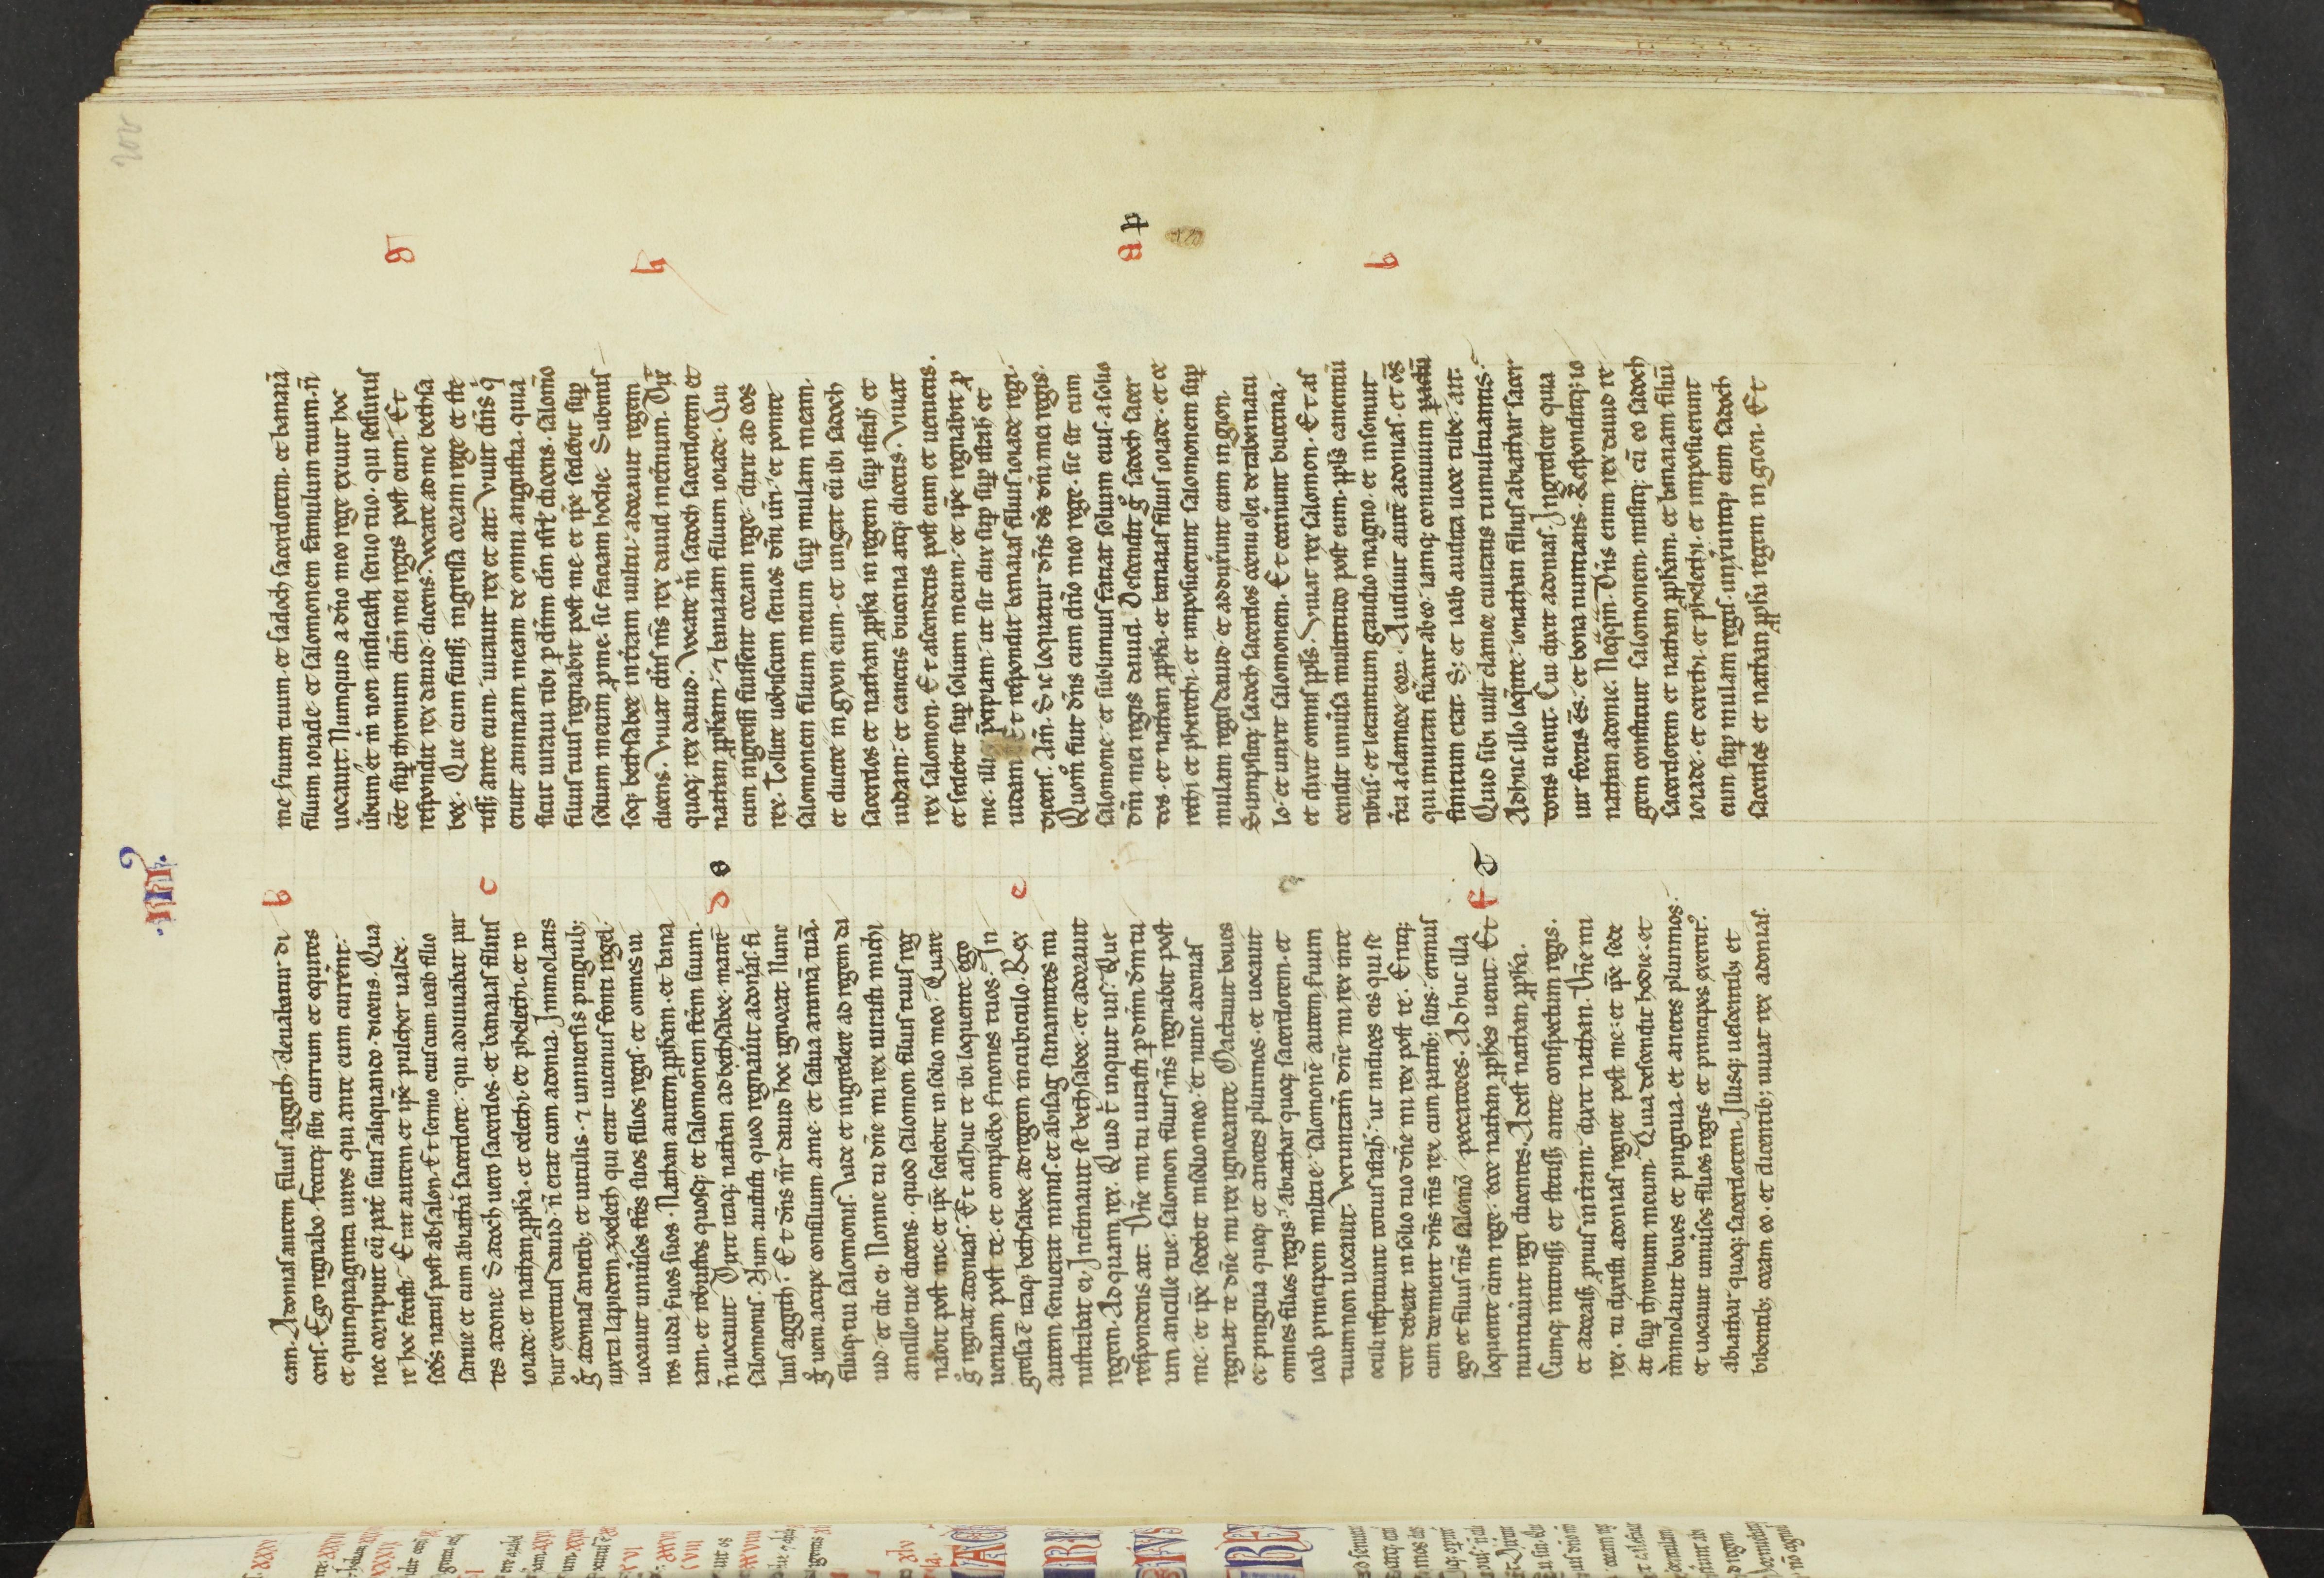 .IIII.
202
eam. Adonias autem filius aggith eleuabatur di b
cens. Ego regnabo. fecitq; sibi currum et equites
et quinquaginta uiros qui ante eum currer̄nt.
nec corripuit eū pat̄ suus aliquando dicens. Qua
re hoc fecisti. Erat autem et ip̄e pulcher ualde.
scd̄s natus post absalon. Et sermo eius cum ioab filio
saruie et cum abiathā sacerdore. qui adiuuabat par
tes adonie. Sadoch uero sacerdos. et banaias filius c
ioiade. et nathan ꝓpha. et cerethi. et phelethi. et ro
bur exercitus dauid. n̄ erat cum adonia. Immolatis
gͦ adonias arietib; et uitulis. ⁊ uniuersis pinguib;
iuxta lapidem zoeleth qui erat uicinus fonti rogel.
uocauit uniu̾sos fr̄es suos filios regis. et omnes ui
ros iuda suos suos. Nathan autem ꝓpham. et bana
iam. et robustos quosq; et salomonem fr̄em suum.
n̄ uocauit. Dixit itaq; nathan ad bethsabee. matrē d
salomonis. Num audisti quod regnauit adonias. fi
lius aggith. Et dn̄s nr̄ dauid hoc ignorat. Nunc
gͦ ueni accipe consilium a me. et salua animā tuā.
filiiq; tui salomonis. Vade et ingredere ad regem da
uid et dic ei. Nonne tu dn̄e mi rex iurasti michi
ancille tue dicens. quod salomon filius tuus reg
nabit post me. et ip̄e sedebit in solio meo. Quare
gͦ regnat adonias. Et adhuc te ibi loquente ego
ueniam post te. et complebo smones tuos. In
gressa ē itaq; bethsabee ad regem in cubiculo. Rex e
autem senuerat nimis. et abisag sunamites mi
nistrabat ei. Inclinauit se bethsabee. et adorauit
regem. Ad quam rex. Quid t̄ inquit uis. Que
respondens ait. Dn̄e mi tu iurasti ꝑ dn̄m dm̄ tu
um. ancille tue. salomon filius m̄s regnabit post
me. et ip̄e sedebit in solio meo. et nunc adonias
regnat te dn̄e mi rex ignorante. Mactauit boues
et pinguia queq; et arietes plurimos. et uocauit
omnes filios regis. abiathar quoq; sacerdotem. et
ioab principem militie. salomonē autem suum
tuum non uocauit. Veruntam̄ dn̄e mi rex in te
oculi respiciunt totius isrl̄. ut indices eis qui se
dere debeat in solio tuo dn̄e mi rex post te. Eritq;
cum dormierit dn̄s m̄s rex cum patrib; suis. erimus
ego et filius m̄s salomō peccatores. Adhuc illa
loquente cum rege. ecce nathan ꝓphes uenit. Et f
nuntiauunt regi dicentes. Adest nathan ꝓpha.
Cumq; introiss; et stetiss; ante conspectum regis.
et adorass; pnus in t̾ram. dixit nathan. Dn̄e mi
rex. tu dixisti adonias regnet post me. et ip̄e sede
at sup̱ thronum meum. Quia descendit hodie. et
immolauit boues et pinguia. et arietes plurimos.
et uocauit uniu̾sos filios regis et principes exerci⁹.
abiathar quoq; sacerdotem. Illisq; uescentib; et
bibentib; coram eo. et dicentib; uiuat rex adonias.
me suum tuum. et sadoch sacerdotem. et banaiā
filium ioiade. et salomonem famulum tuum. n̄
uocauit. Nunquid a dn̄o meo rege exiuit hoc
u̾bum et m̄ non indicasti seruo tuo. qui sessurus
eēt sup̱ thronum dn̄i mei regis post eum. Et g
respondit rex dauid. dicens. Vocate ad me bethsa
bee. Que cum fuiss; ingressa coram rege et ste
tiss; ante eum. iurauit rex et ait. Viuit dn̄s q̇
eruit animam meam de omni angustia. quia
sicut iuraui tibi ꝑ dn̄m dm̄ isrl̄ dicens. salomō
filius tuus regnabit post me. et ip̄e sedebit sup̱
solium meum ꝓ me. sic faciam hodie. Submis
soq; bethsabee in t̾ram uultu. adorauit regem h
dicens. Viuat dn̄s m̄s rex dauid in et̾num. Dix̄
quoq; rex dauid. Vocate m̄ sadoch sacerdotem et
nathan ꝓpham. ⁊ banaiam filium ioiade. Qui
cum ingressi fuissent coram rege. dixit ad eos
rex. Tollite uobiscum seruos dn̄i ur̄i. et ponite
salomonem filium meum sup̱ mulam meam.
et ducite in gyon eum. et ungat eū ibi sadoch
sacerdos et nathan ꝓpha in regem sup̱ isrl̄. et
iudam. et canetis buccina atq; dicetis. Viuat
rex salomon. Et ascendetis post eum et uenietis.
et sedebit sup̱ solium meum. et ip̄e regnabit ꝓ
me. illi p̄cipiam ut sit dux sup̱ isrl̄ et
iudam. Et respondit banaias filius ioiade regi.
dicens. Am̄. Sic loquatur dn̄s ds̄ dn̄i mei regis. a
Quom̊ fuit dn̄s cum dn̄o meo rege. sic sit cum
salomone. et sublimius faciat solium eius. a solio
dn̄i mei regis dauid. Descendit gͦ sadoch sacer
dos. et nathan ꝓpha. et banaias filius ioiade. et ce
rethi et pherethi. et imposuerunt salomonem sup̱
mulam regis dauid. et adduxrunt eum in gion.
Sumpsitq; sadoch sacerdos cornu olei de tabernacu
lo. et unxit salomonem. Et cecinunt buccina.
et dixit omnis ppl̄s. Viuat rex salomon. Et as b
cendit uniu̾sa multitudo post eum. ppl̄s canentiū
tibiis. et letantium gaudio magno. et insonuit
t̾ra a clamore eoꝝ. Audiuit autē adonias. et om̄s
qui inuitati fu̾ant ab eo. iamq; conuiuium ꝑactū
finitum erat. S; et ioab audita uoce tube. ait.
Quid sibi uult clamor ciuitatis tumultuantis.
Adhuc illo loq̄nte. ionathan filius abiathar sacer
dotis uenit. Cui dixit adonias. Ingredere quia
uir fortis es. et bona nuntians. Responditq; io
nathan adonie. Neq̄q̄m. Dn̄s enim rex dauid re
gem constituit salomonem. misitq; cū eo sadoch
sacerdotem et nathan ꝓpham. et banaiam filiū
ioiade. et cerethi. et phelethi. et imposuerunt
eum sup̱ mulam regis. unxuntq; eum sadoch
sacerdos et nathan ꝓpha regem in gion. Et